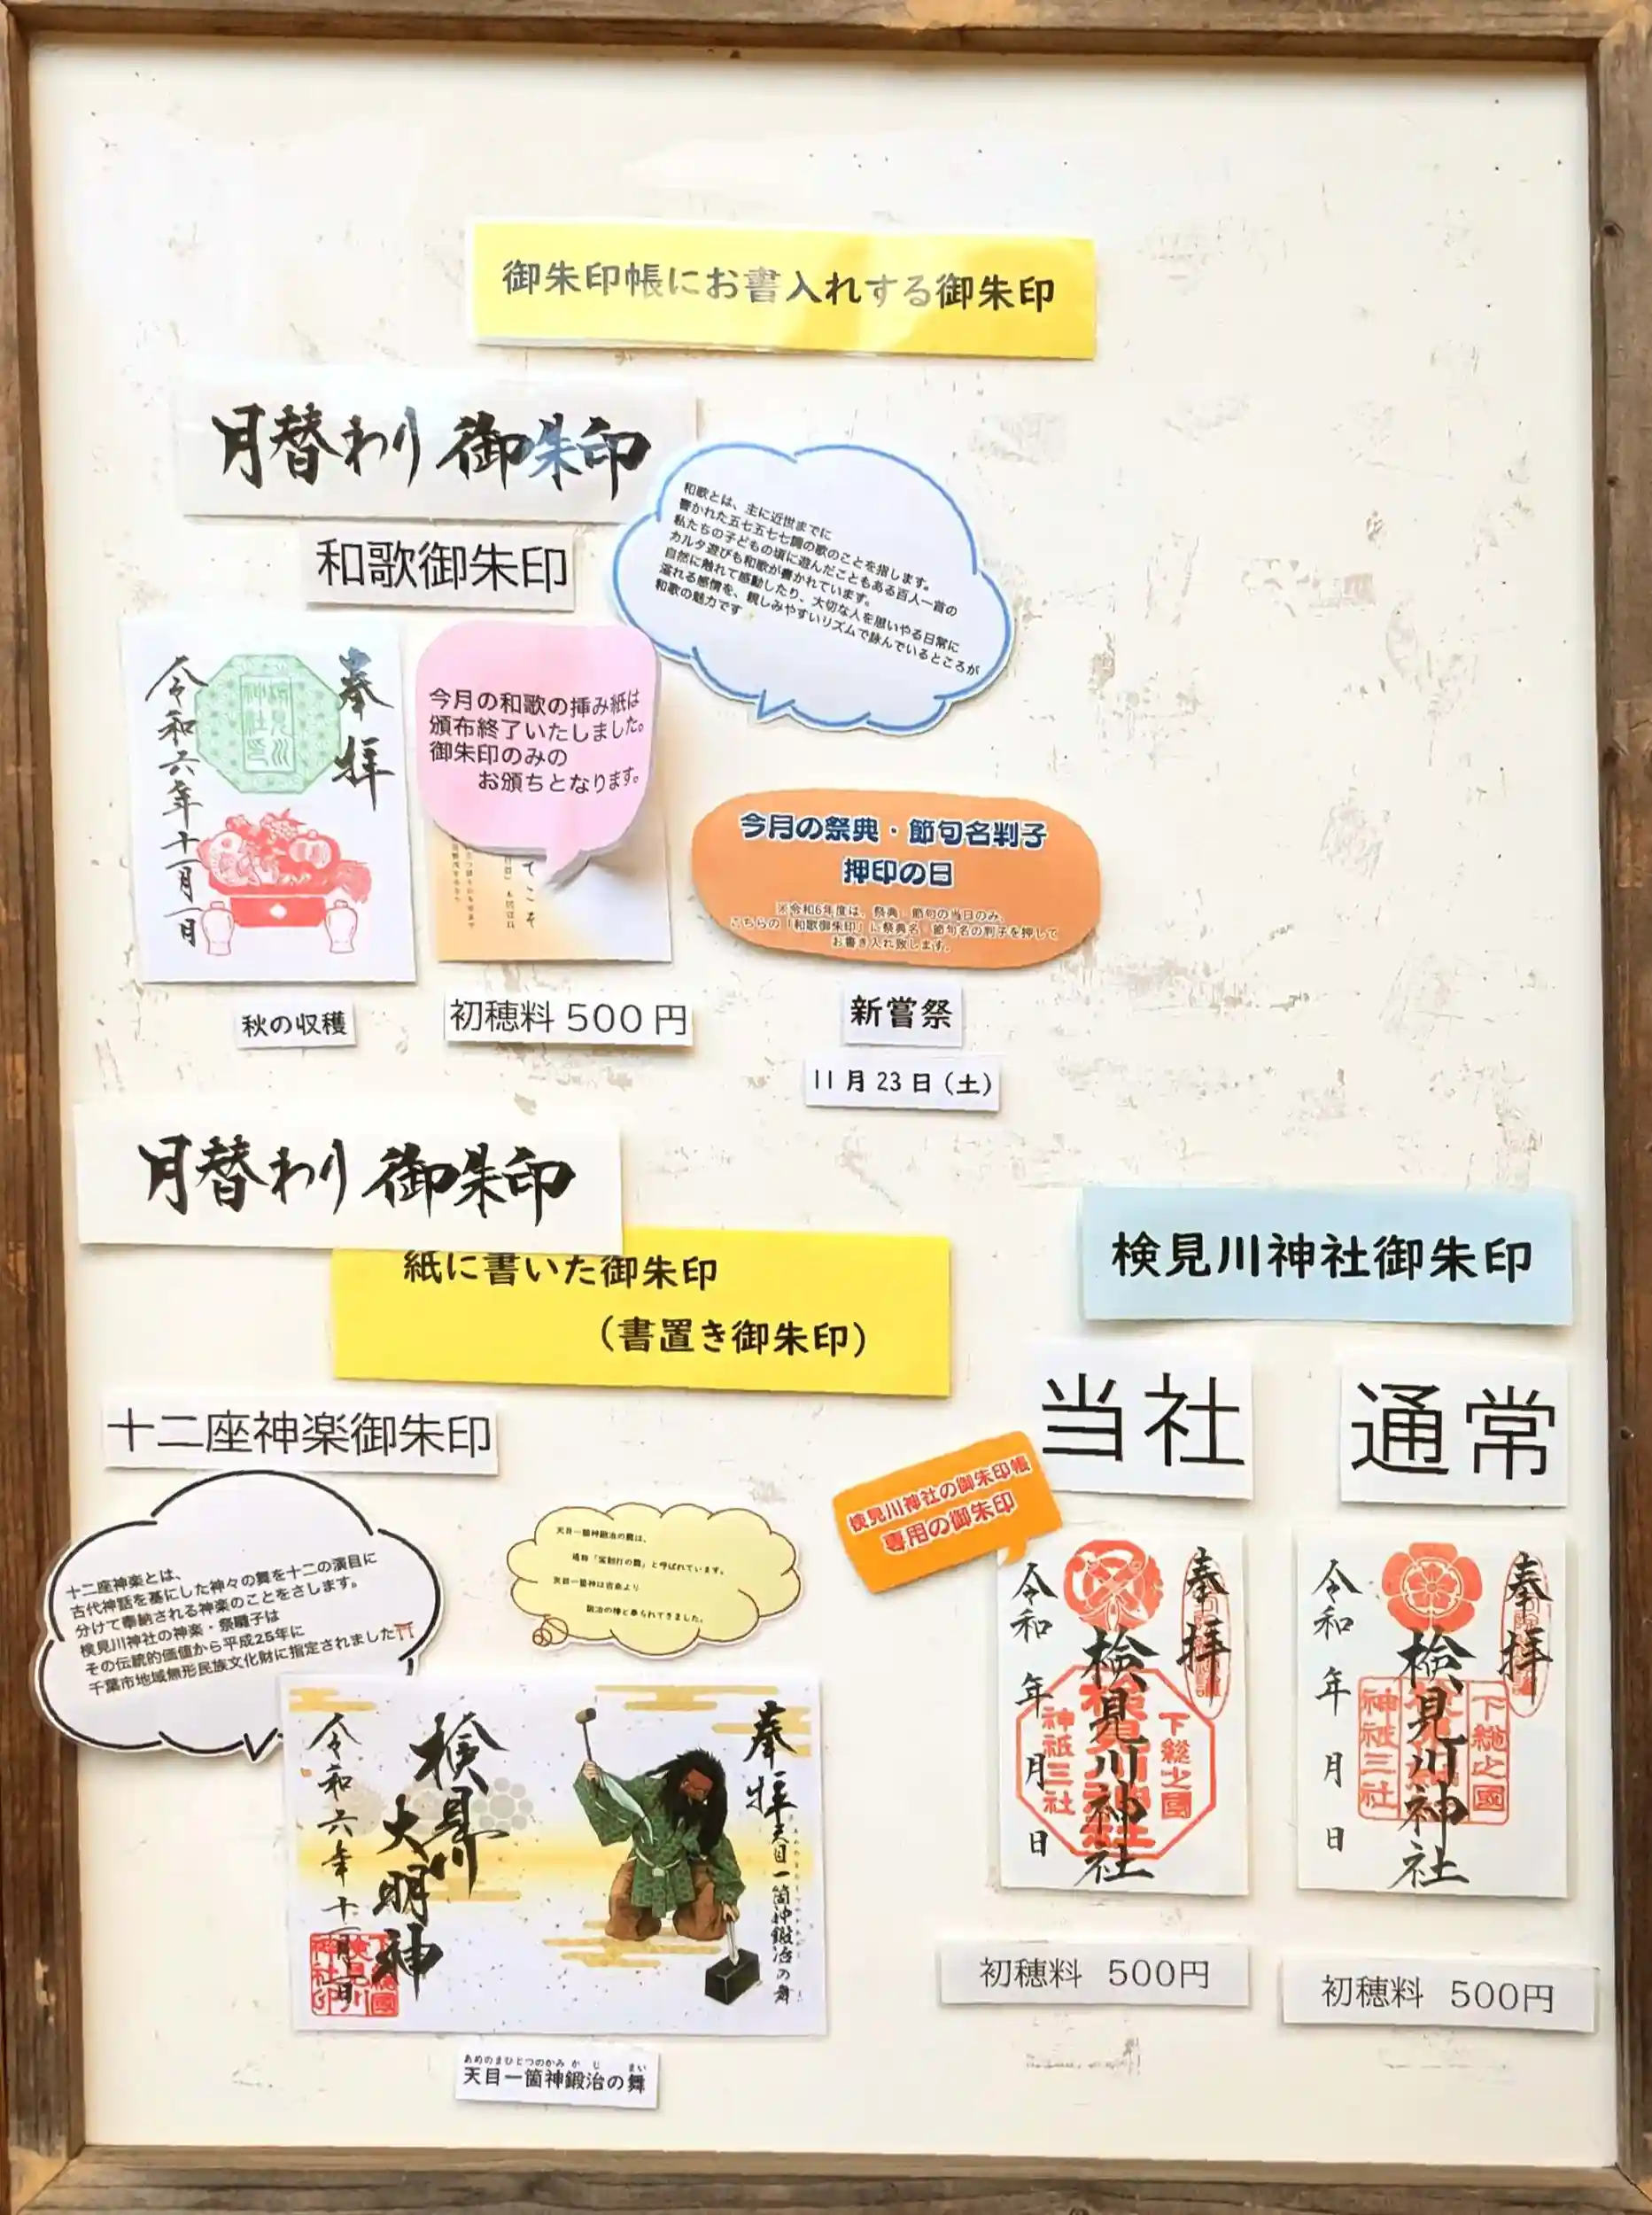 御朱印帳にお書入れする御朱印
月替わり御朱印
和歌御朱印
和歌とは、主に近世までに
書かれた五七五七七調の歌のことを指します。
私たちの子どもの頃に遊んだこともある百人一首の
カルタ遊びも和歌が書かれています。
自然に触れて感動したり、大切な人を思いやる日常に
溢れる感情を、親しみやすいリズムで詠んでいるところが
和歌の魅力です
奉拝
令和六年十一月一日
今月の和歌の挿み紙は
頒布終了いたしました。
御朱印のみの
お頒ちとなります。
てこそ
今月の祭典・節句名判子
押印の日
※令和6年度は、祭典・節句の当日のみ、
こちらの「和歌御朱印」に祭典名・節句名の判子を押して
お書き入れ致します。
秋の収穫
初穂料 500 円
新嘗祭
11 月 23 日（土）
月替わり御朱印
紙に書いた御朱印
（書置き御朱印）
十二座神楽御朱印
十二座神楽とは、
古代神話を基にした神々の舞を十二の演目に
分けて奉納される神楽のことをさします。
検見川神社の神楽・祭囃子は
その伝統的価値から平成25年に
千葉市地域無形民族文化財に指定されました
天目一箇神鍛冶の舞は、
通称「宝剣打の舞」と呼ばれています。
天目一箇神は古来より
鍛冶の神と奉られてきました。
奉拝
天目一箇神鍛冶の舞
検見川
大明神
令和六年十一月一日
あめのまひとつのかみ か じ まい
天目一箇神鍛治の舞
検見川神社御朱印
当社
検見川神社の御朱印帳
専用の御朱印
奉拝
下総之國
検見川神社
神祇三社
令和 年 月 日
初穂料 500円
通常
奉拝
下総之國
検見川神社
神祇三社
令和 年 月 日
初穂料 500円